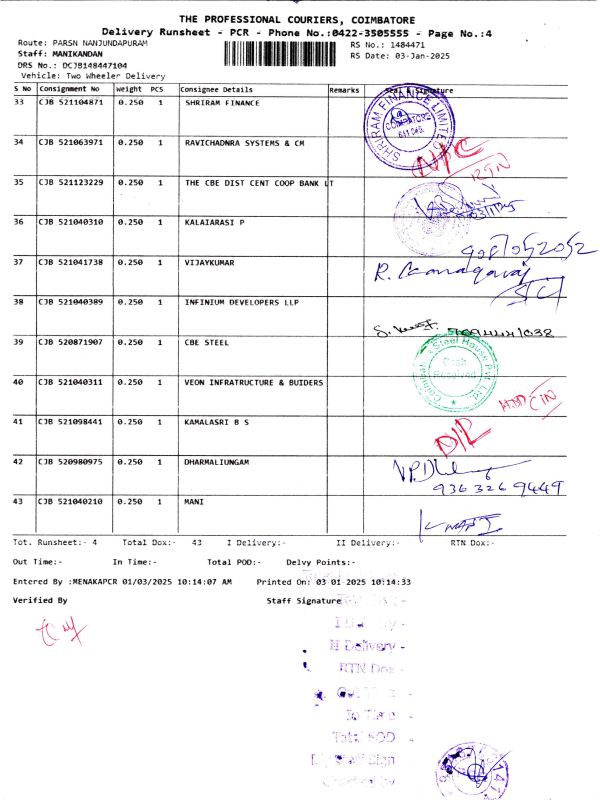 THE PROFESSIONAL COURIERS, COIMBATORE
Delivery Runsheet - PCR - Phone No.:0422-3505555 - Page No.:4
Route: PARSN NANJUNDAPURAM RS No.: 1484471
Staff: MANIKANDAN RS Date: 03-Jan-2025
DRS No.: DCJB148447104
Vehicle: Two Wheeler Delivery
S No Consignment No Weight PCS Consignee Details Remarks Seal & Signature
33 CJB 521104871 0.250 1 SHRIRAM FINANCE
SHRIRAM FINANCE LIMITED COIMBATORE
34 CJB 521063971 0.250 1 RAVICHADNRA SYSTEMS & CM
NPC
RTN
35 CJB 521123229 0.250 1 THE CBE DIST CENT COOP BANK LT
36 CJB 521040310 0.250 1 KALAIARASI P
37 CJB 521041738 0.250 1 VIJAYKUMAR
R. Kanagaraj
38 CJB 521040389 0.250 1 INFINIUM DEVELOPERS LLP
39 CJB 520871907 0.250 1 CBE STEEL
Steel House Pvt Ltd. Cash Received
40 CJB 521040311 0.250 1 VEON INFRATRUCTURE & BUIDERS
41 CJB 521098441 0.250 1 KAMALASRI B S
D/L
42 CJB 520980975 0.250 1 DHARMALIUNGAM
936 326 9449
43 CJB 521040210 0.250 1 MANI
Tot. Runsheet:- 4 Total Dox:- 43 I Delivery:- II Delivery:- RTN Dox:-
Out Time:- In Time:- Total POD:- Delvy Points:-
Entered By :MENAKAPCR 01/03/2025 10:14:07 AM Printed On: 03 01 2025 10:14:33
Verified By Staff Signature
II Delivery -
RTN Dox -
In Time -
Total POD -